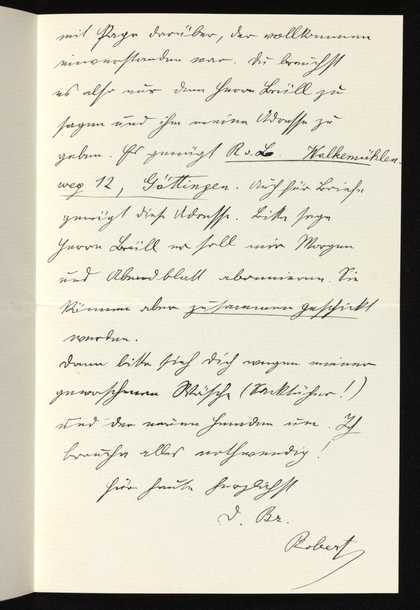 mit Page darüber, der vollkommen
einverstanden war. Du brauchst
es also nur dem Herrn Brüll zu
sagen und ihm meine Adresse zu
geben. Es genügt R. v. L. Walkemühlen-
weg 12, Göttingen. Auch für Briefe
genügt diese Adresse. Bitte sage
Herrn Brüll er soll mir Morgen
und Abendblatt abonnieren. Sie
können aber zusammen geschickt
werden.
Dann bitte sieh Dich wegen meiner
gewaschenen Wäsche (Sacktücher!)
und der neuen Hemden um. Ich
brauche alles nothwendig!
Für heute herzlichst
D. Br.
Robert